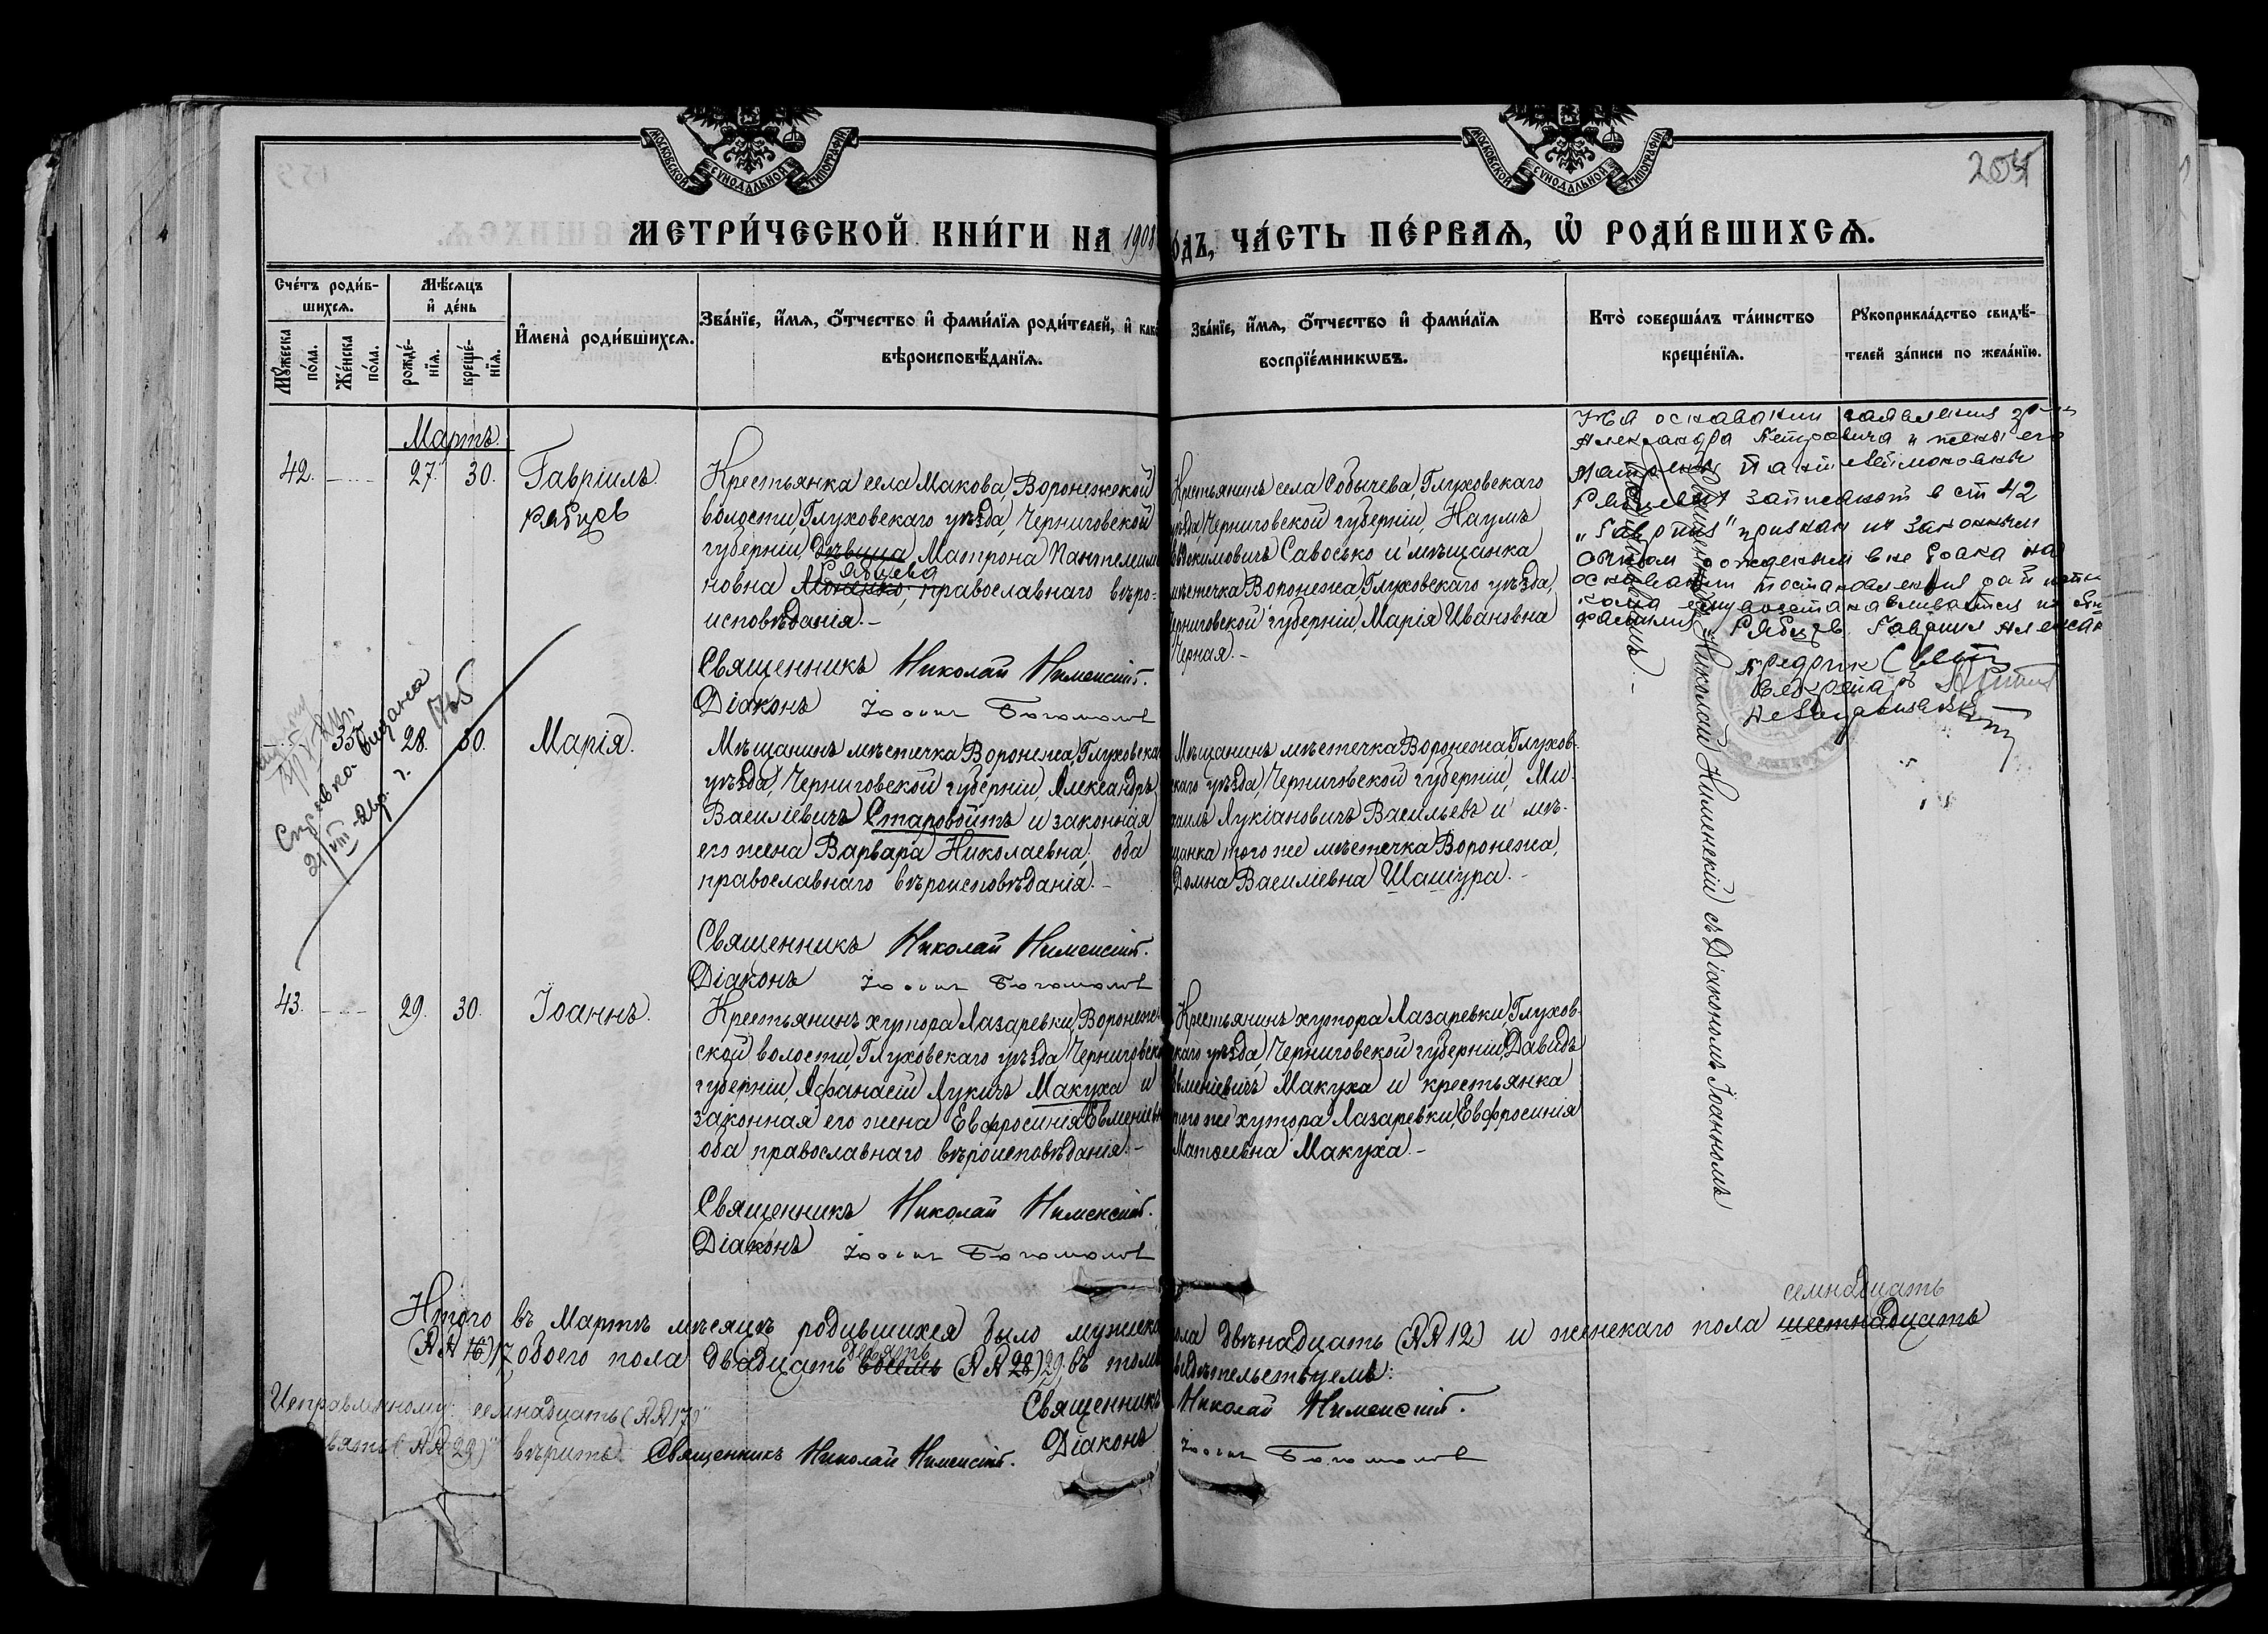 МОСКОВСКОЙ СѴНОДАЛЬНОЙ ТИПОГРАФІИ
МОСКОВСКОЙ СѴНОДАЛЬНОЙ ТИПОГРАФІИ
МЕТРИ́ЧЕСКОЙ КНИ́ГИ НА 1908
ОДЪ, ЧА́СТЬ ПЕ́РВАѦ, Ѡ҆ РОДИ́ВШИХСѦ.
Сче́тъ роди́в-
шихсѧ.
Мꙋжеска по́ла.
Же́нска по́ла.
Мѣ́сѧцъ
и҆ де́нь
рожде́-
нїѧ.
креще́-
нїѧ.
И҆мена̀ роди́вшихсѧ.
Зва́нїе, и҆́мѧ, ѻ҆́тчество и҆ фами́лїѧ роди́телей, и҆ как
вѣроисповѣ́данїѧ.
Зва́нїе, и҆́мѧ, ѻ҆́тчество и҆ фами́лїѧ
воспрїе́мникѡвъ.
Кто̀ соверша́лъ та́инство
креще́нїѧ.
Рꙋкоприкла́дство свидѣ́-
телей за́писи по жела́нїю.
Мартъ.
42. 27. 30. Гавріилъ.
Рябцев
Крестьянка села Макова, Воронежской
волости, Глуховскаго уѣзда, Черниговской
губерніи, дѣвица Матрона Пантелеим
Рябцева
новна православнаго вѣро-
исповѣданія.-
Священникъ Николай
Діаконъ Іоаннъ Богомолов
Крестьянинъ села Собычева, Глуховскаго
уѣзда, Черниговской губерніи, Наумъ
Евдокимовичъ Савосько и мѣщанка
мѣстечка Воронежа, Глуховскаго уѣзда,
Черниговской губерніи, Марія Ивановна
Черная.-
На основании заявления
Александра Петровича и жены его
Пантелеймоновны
записаный в ст 42
законным
рожденным вне брака на
основании постановления
фамилия Рябцев Гавриил Алексан
Священникъ Николай съ Діакономъ Іоанномъ
Богомоловымъ.-
Справка выдана
35 28. 30. Марія.
Мѣщанинъ мѣстечка Воронежа, Глуховска
уѣзда, Черниговской губерніи, Александръ
Василіевичъ Старовойтъ и законная
его жена Варвара Николаевна, оба
православнаго вѣроисповѣданія.-
Священникъ Николай
Діаконъ Іоаннъ Богомолов
Мѣщанинъ мѣстечка Воронежа, Глухов-
скаго уѣзда, Черниговской губерніи, Ми-
хаилъ Лукіановичъ Васильевъ и мѣ-
щанка того же мѣстечка Воронежа,
Домна Василіевна Шашура.-
43. 29. 30. Іоаннъ.
Крестьянинъ хутора Лазаревки, Воронеж
ской волости, Глуховскаго уѣзда, Черниговско
губерніи, Аѳанасій Лукичъ Макуха и
законная его жена Евфросинія Евменіевн
оба православнаго вѣроисповѣданія.-
Священникъ Николай
Діаконъ Іоаннъ Богомолов
Крестьянинъ хутора Лазаревки, Глухов-
скаго уѣзда, Черниговской губерніи, Давидъ
Евменіевичъ Макуха и крестьянка
того же хутора Лазаревки, Евфросинія
Матѳіевна Макуха.-
семнадцать
Итого въ Мартѣ мѣсяцѣ родившихся было мужска
пола двѣнадцать (№№ 12) и женскаго пола шестнадцать
девять
(№№ 16) 17 обоего пола двадцать восемь (№№ 28) 29, въ томъ
свидѣтельствуемъ:
Священникъ Николай
Діаконъ Іоаннъ Богомолов
Исправленному: "семнадцать (№№ 17)"
девять (№№ 29)" вѣрить. Священникъ Николай